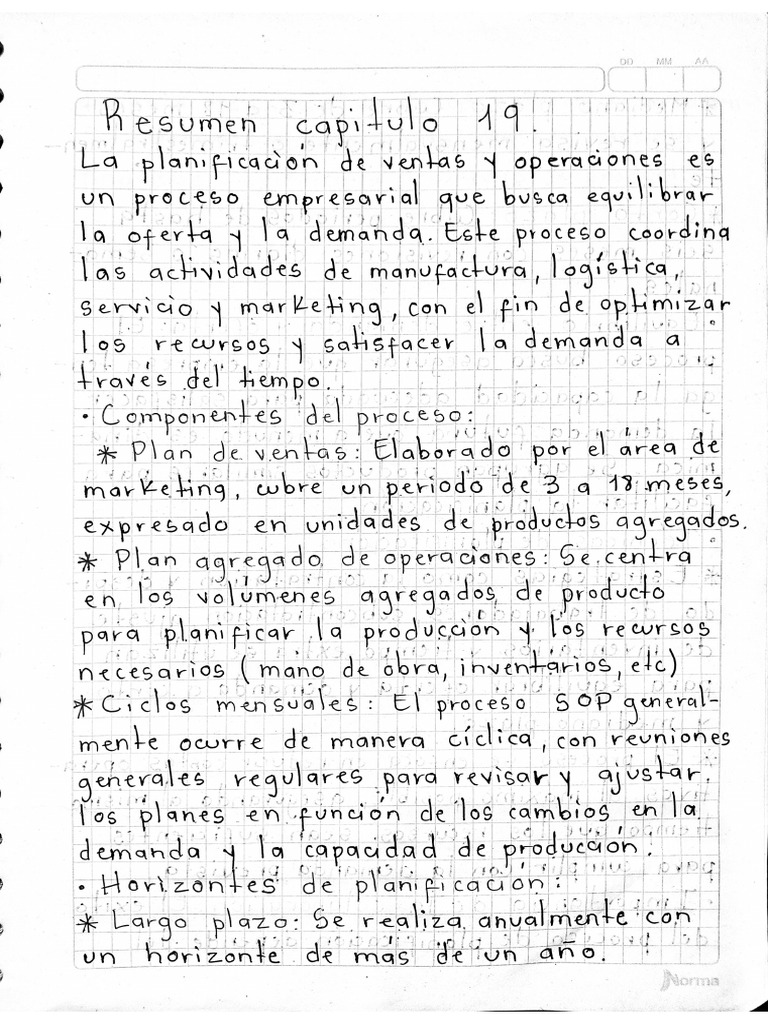 DD MM AA
Resumen capitulo 19.
La planificación de ventas y operaciones es
un proceso empresarial que busca equilibrar
la oferta y la demanda. Este proceso coordina
las actividades de manufactura, logística,
servicio y marketing, con el fin de optimizar
los recursos y satisfacer la demanda a
través del tiempo.
· Componentes del proceso:
* Plan de ventas: Elaborado por el área de
marketing, cubre un periodo de 3 a 18 meses,
expresado en unidades de productos agregados.
* Plan agregado de operaciones: Se centra
en los volúmenes agregados de producto
para planificar la producción y los recursos
necesarios (mano de obra, inventarios, etc)
* Ciclos mensuales: El proceso SOP general-
mente ocurre de manera cíclica, con reuniones
generales regulares para revisar y ajustar
los planes en función de los cambios en la
demanda y la capacidad de producción.
· Horizontes de planificación:
* Largo plazo: Se realiza anualmente con
un horizonte de más de un año.
Norma